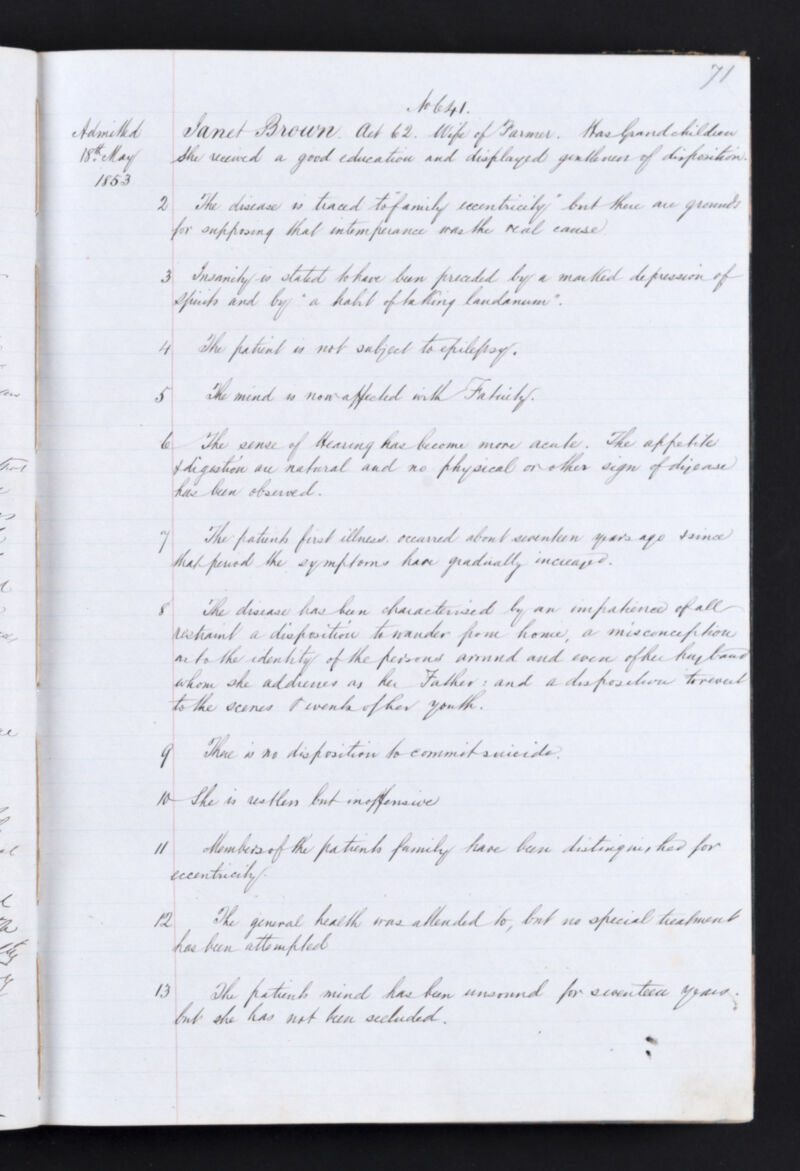 71
No 641.
Admitted
18th May
1853
Janet Brown. Aet 62. Wife of Farmer. Has Grandchildren
She received a good education and displayed gentleness of disposition.
2 The disease is traced to "family eccentricity" but there are grounds
for supposing that intemperance was the real cause.
3 Insanity is stated to have been preceded by a marked depression of
Spirits and by "a habit of taking laudanum".
4 The patient is not subject to epilepsy.
5 The mind is now affected with Fatuity.
6 The sense of Hearing has become more acute. The appetite
& digestion are natural and no physical or other sign of disease
has been observed.
7 The patients first illness occurred about seventeen years ago & since
that period the symptoms have gradually increased.
8 The disease has been characterised by an impatience of all
restraint a disposition to wander from home, a misconception
as to the identity of the persons around and even of her husband
whom she addresses as her Father: and a disposition to revert
to the scenes & events of her youth.
9 There is no disposition to commit suicide.
10 She is restless but inoffensive
11 Members of the patients family have been distinguished for
eccentricity.
12 The general health was attended to, but no special treatment
has been attempted
13 The patients mind has been unsound for seventeen years.
but she has not been secluded.